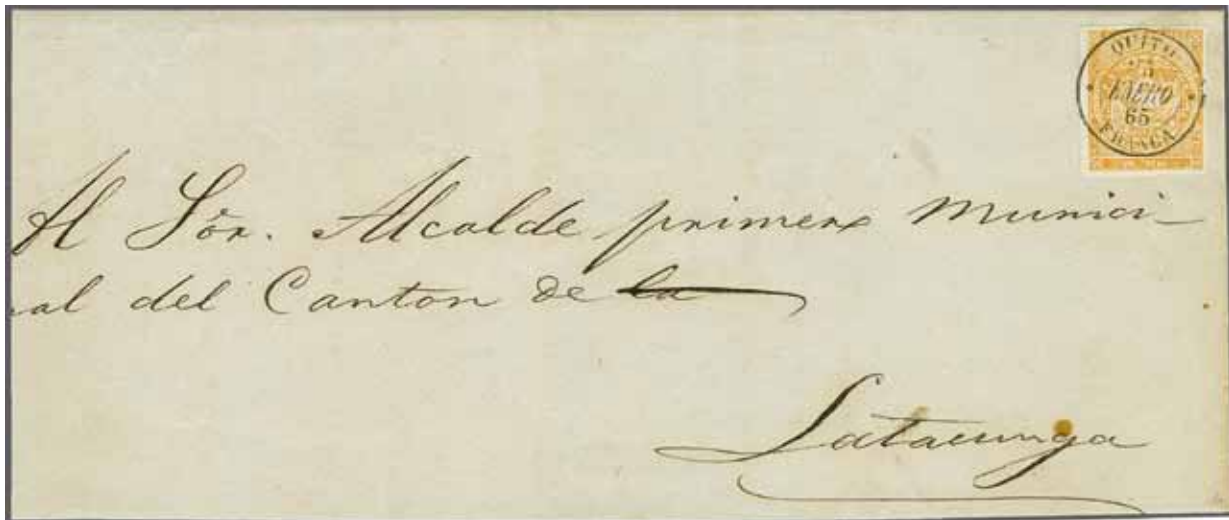 QUITO
ENERO
65
FRANCA
Al Sôr. Alcalde primero Munici-
al del Canton de la
Latacunga